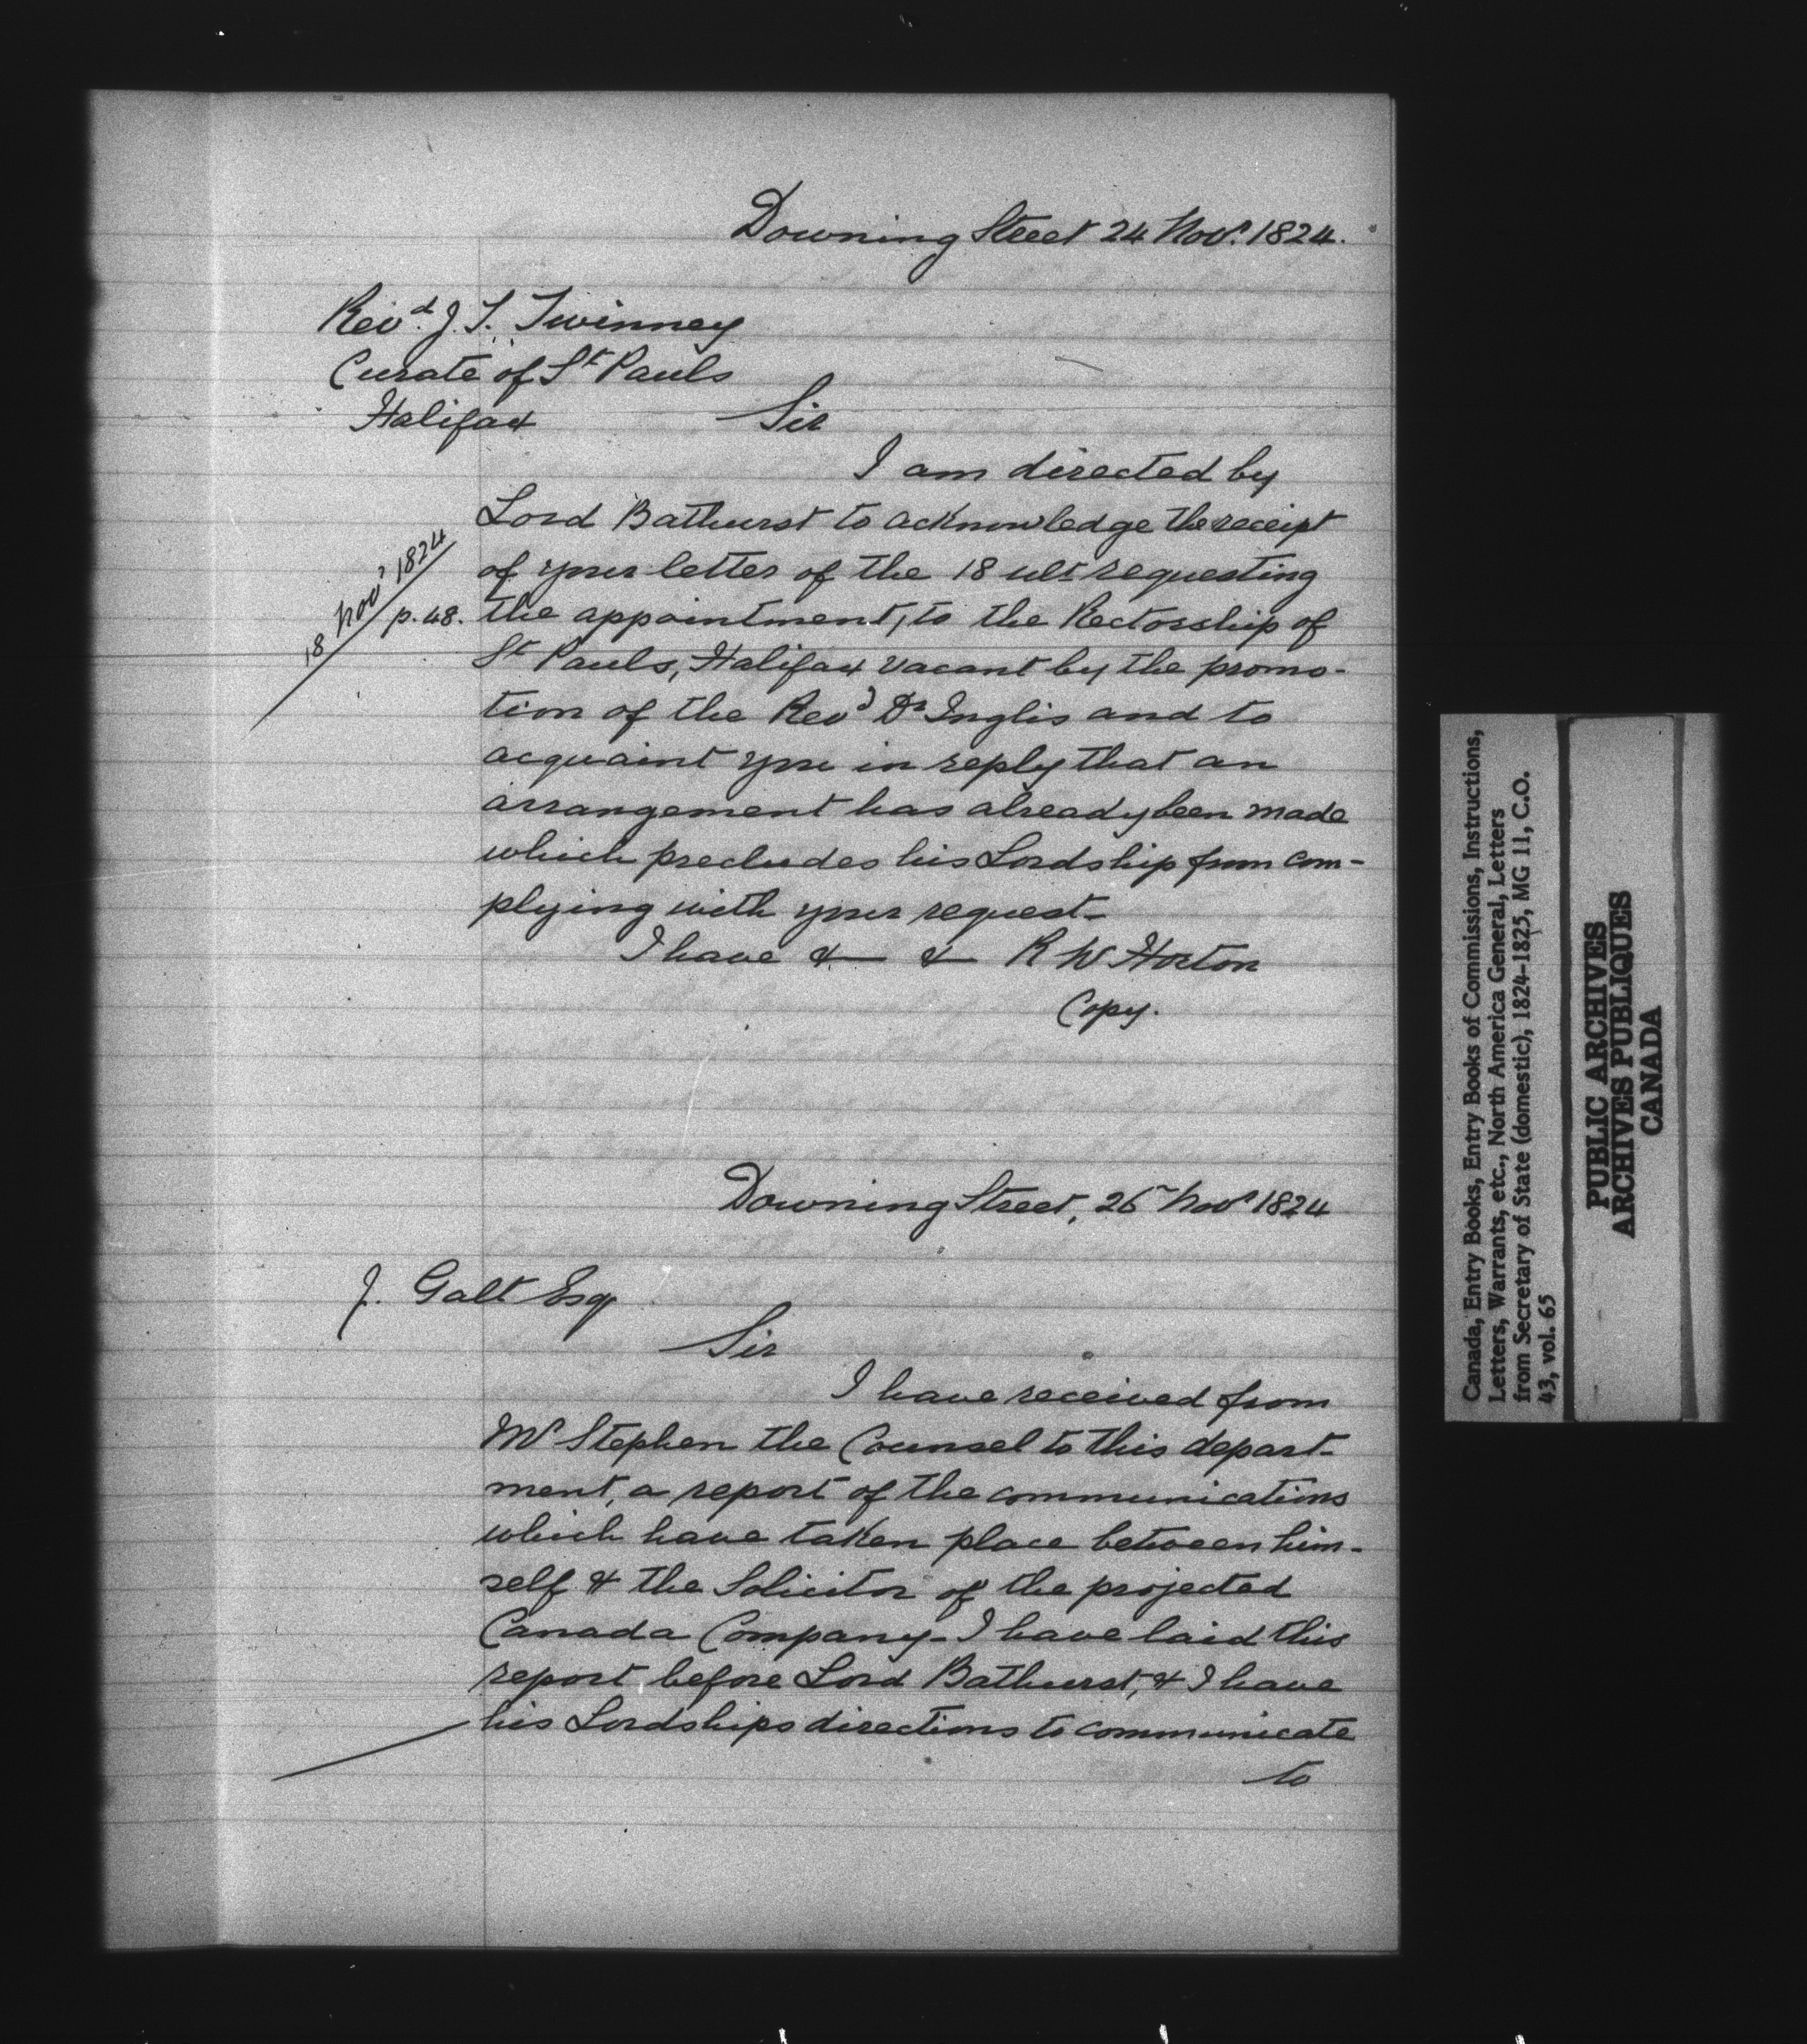 Downing Street 24 Novr. 1824.
Revd. J. T. Twinney
Curate of St Pauls
Halifax
Sir
I am directed by
Lord Bathurst to acknowledge the receipt
of your letter of the 18 ult requesting
18 Novr 1824
p. 48.
the appointment, to the Rectorship of
St Pauls, Halifax vacant by the promo-
tion of the Revd Dr Inglis and to
acquaint you in reply that an
arrangement has already been made
which precludes his Lordship from com-
plying with your request-
I have & & R W Horton
Copy.
Downing Street, 26 Novr 1824
J. Galt Esq
Sir
I have received from
Mr Stephen the Counsel to this depart-
ment, a report of the communications
which have taken place between him-
self & the Solicitor of the projected
Canada Company- I have laid this
report before Lord Bathurst, & I have
his Lordships directions to communicate
to
Canada, Entry Books, Entry Books of Commissions, Instructions,
Letters, Warrants, etc., North America General, Letters
from Secretary of State (domestic), 1824-1825, MG 11, C.O.
43, vol. 65
PUBLIC ARCHIVES
ARCHIVES PUBLIQUES
CANADA